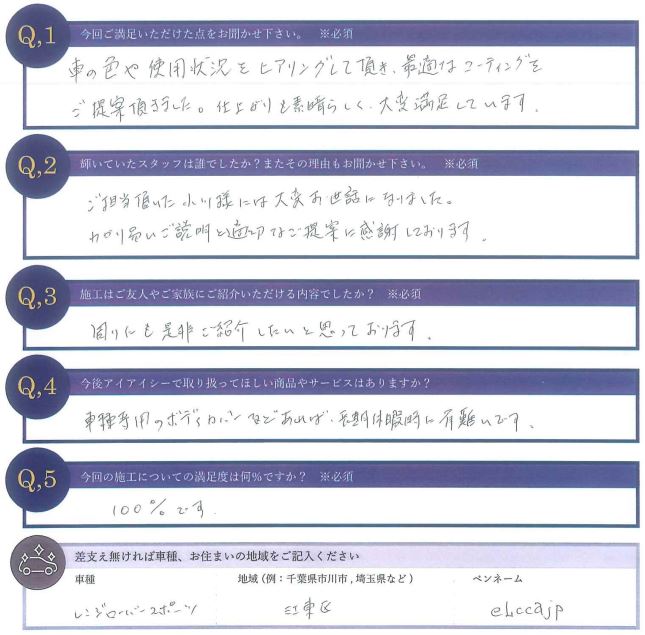 Q,1 今回ご満足いただけた点をお聞かせ下さい。 ※必須
車の色や使用状況をヒアリングして頂き、最適なコーティングを
ご提案頂きました。仕上がりも素晴らしく、大変満足しています。
Q,2 輝いていたスタッフは誰でしたか?またその理由もお聞かせ下さい。 ※必須
ご担当頂いた小川様には大変お世話になりました。
わかり易いご説明と適切なご提案に感謝しております。
Q,3 施工はご友人やご家族にご紹介いただける内容でしたか? ※必須
周りにも是非ご紹介したいと思っております。
Q,4 今後アイアイシーで取り扱ってほしい商品やサービスはありますか?
車種専用のボディカバーなどあれば、長期休暇時に有難いです。
Q,5 今回の施工についての満足度は何%ですか? ※必須
100%です
差支え無ければ車種、お住まいの地域をご記入ください
車種 地域(例:千葉県市川市,埼玉県など) ペンネーム
レンジローバースポーツ 江東区 ehccajp